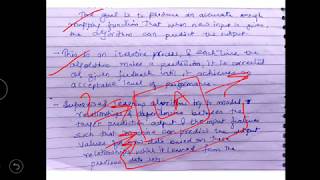 The goal is to produce an accurate enough
mapping function that when new input is given,
the algorithm can predict the output.
This is an iterative process, & each time the
algorithm makes a prediction, it is corrected
or given feedback until it achieves an
acceptable level of performance.
Supervised learning algorithm try to model
relationship & dependencies between the
target prediction output & the input features
such that we can predict the output
values for new data based on those
relationships which it learned from the
previous data sets